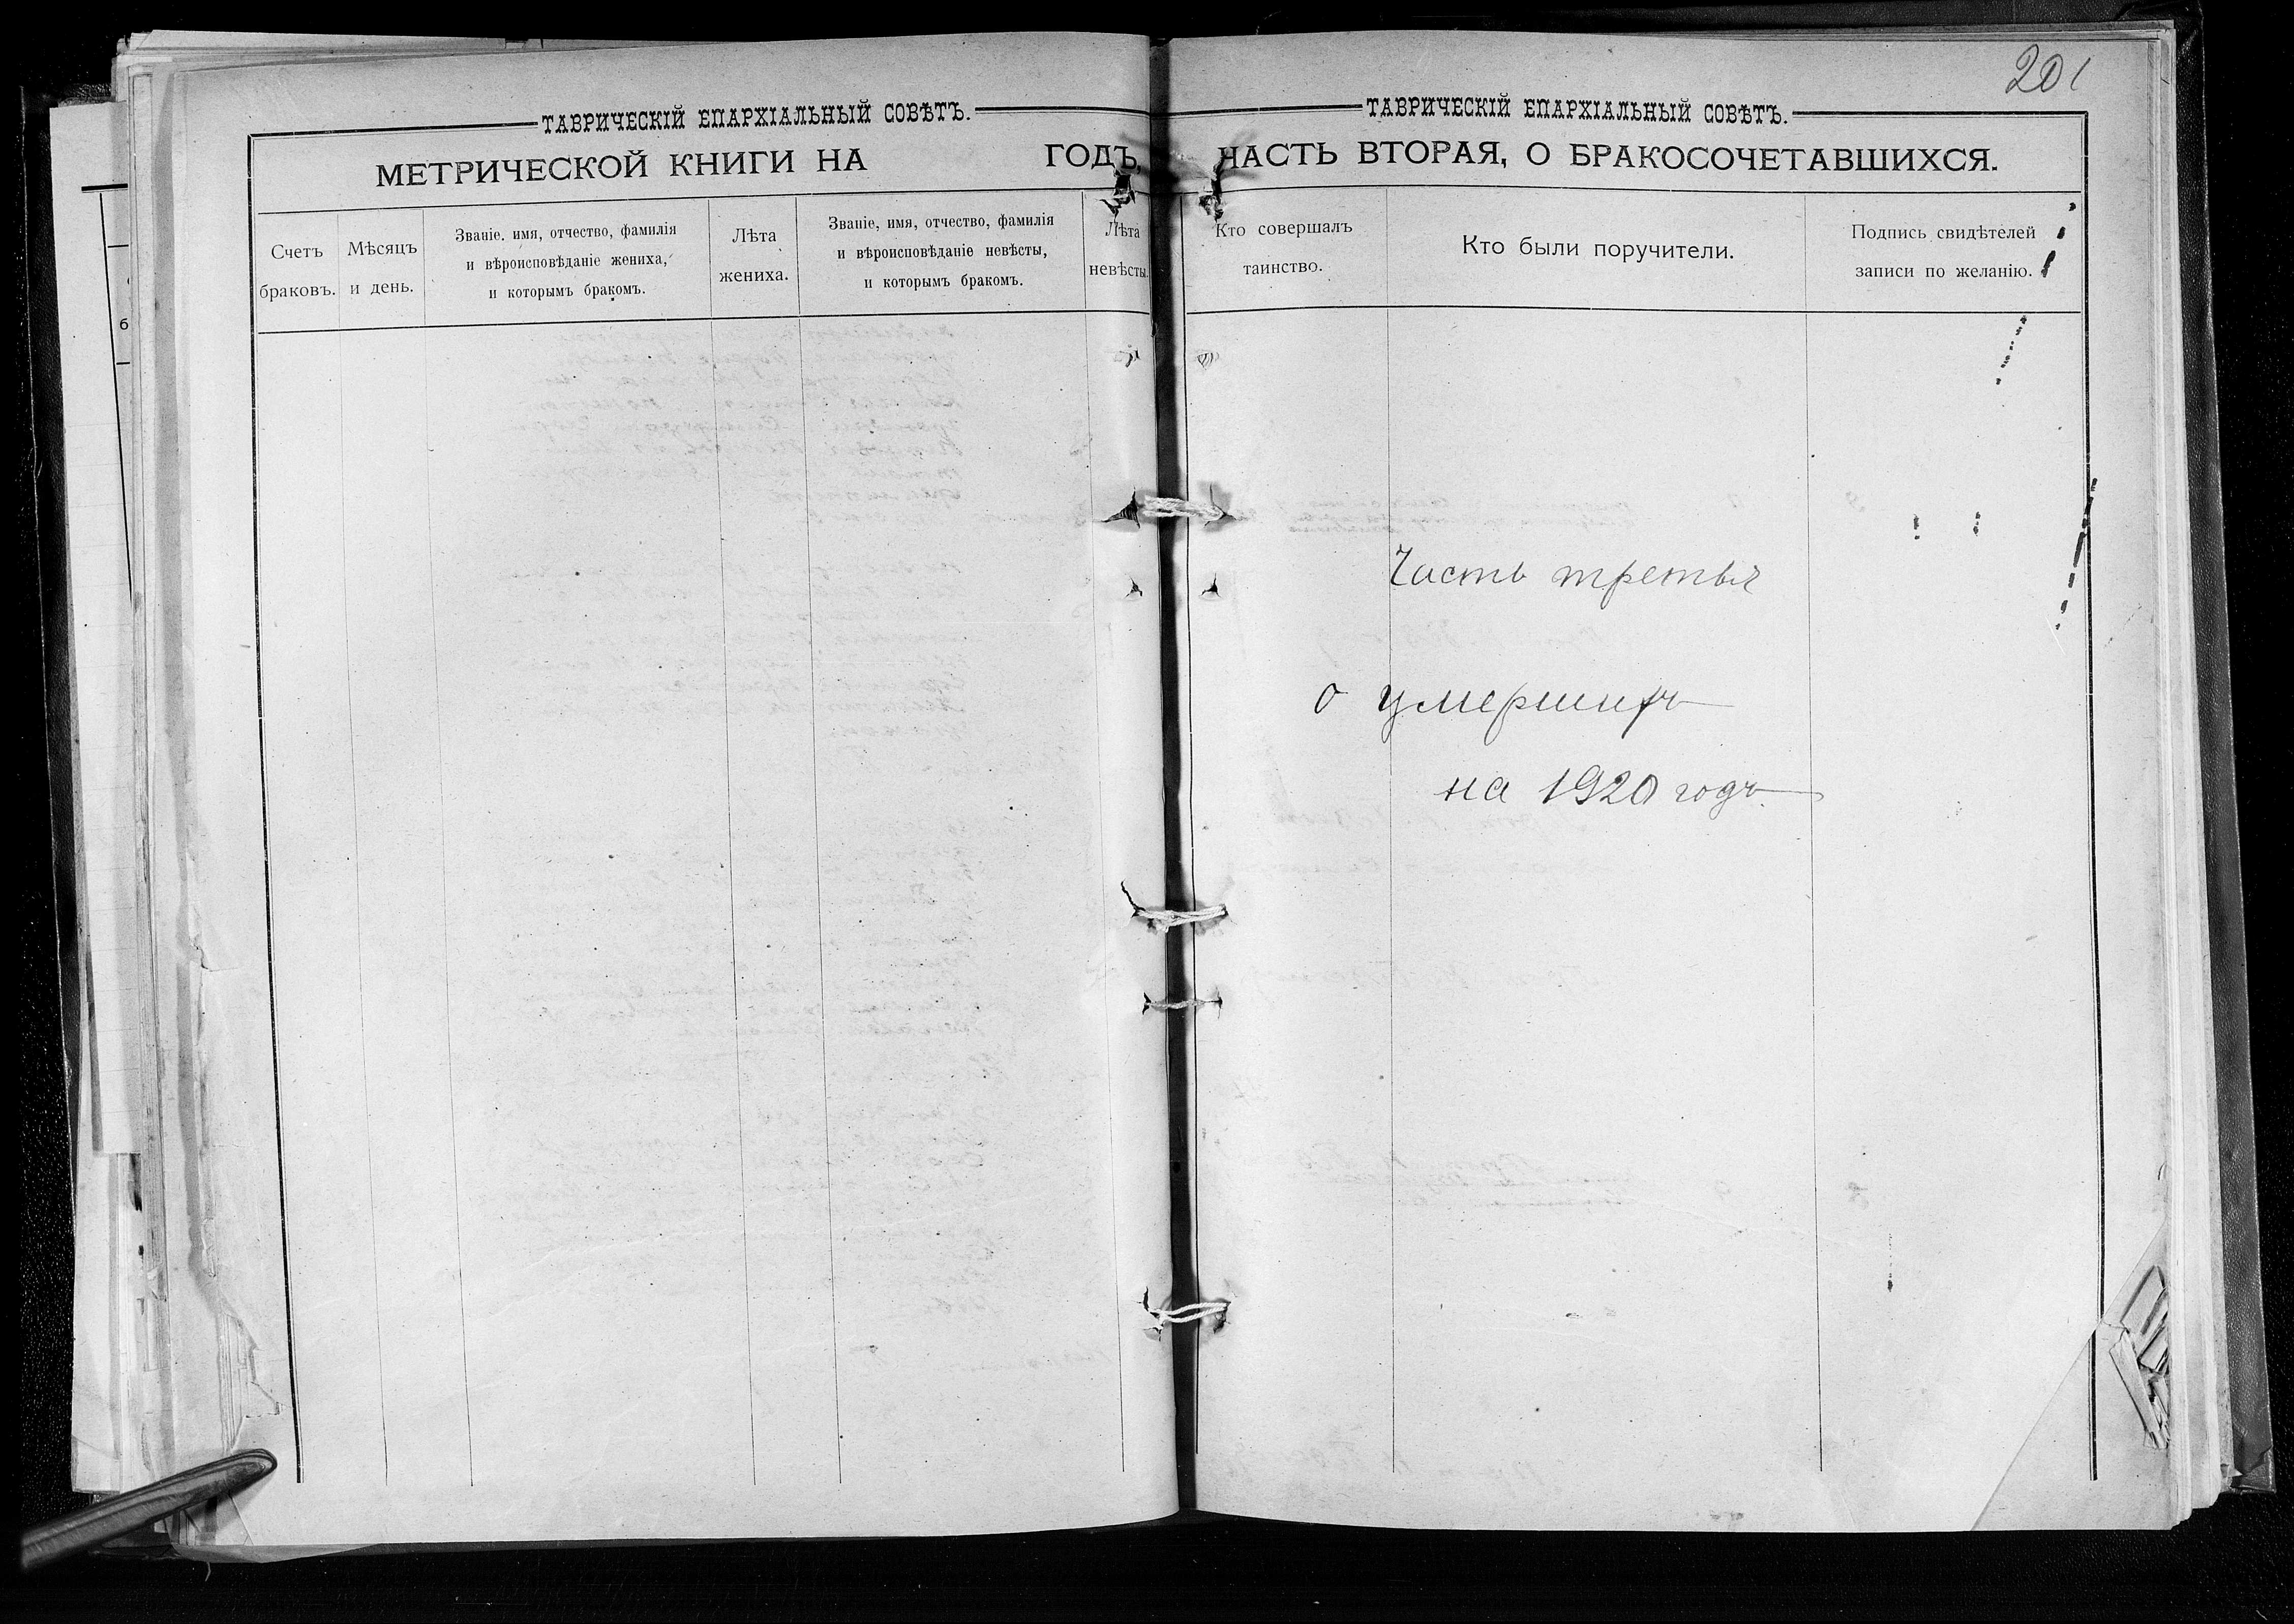 201
ТАВРИЧЕСКІЙ ЕПАРХІАЛЬНЫЙ СОВѢТЪ.
МЕТРИЧЕСКОЙ КНИГИ НА ГОДЪ,
Счетъ
браковъ.
Мѣсяцъ
и день.
Званіе. имя, отчество, фамилія
и вѣроисповѣданіе жениха,
и которымъ бракомъ.
Лѣта
жениха.
Званіе, имя, отчество, фамилія
и вѣроисповѣданіе невѣсты,
и которымъ бракомъ.
Лѣта
невѣсты.
б
ТАВРИЧЕСКІЙ ЕПАРХІАЛЬНЫЙ СОВѢТЪ.
ЧАСТЬ ВТОРАЯ, О БРАКОСОЧЕТАВШИХСЯ.
Кто совершалъ
таинство.
Кто были поручители.
Подпись свидѣтелей
записи по желанію.
Часть третья
о умершихъ
на 1920 годъ